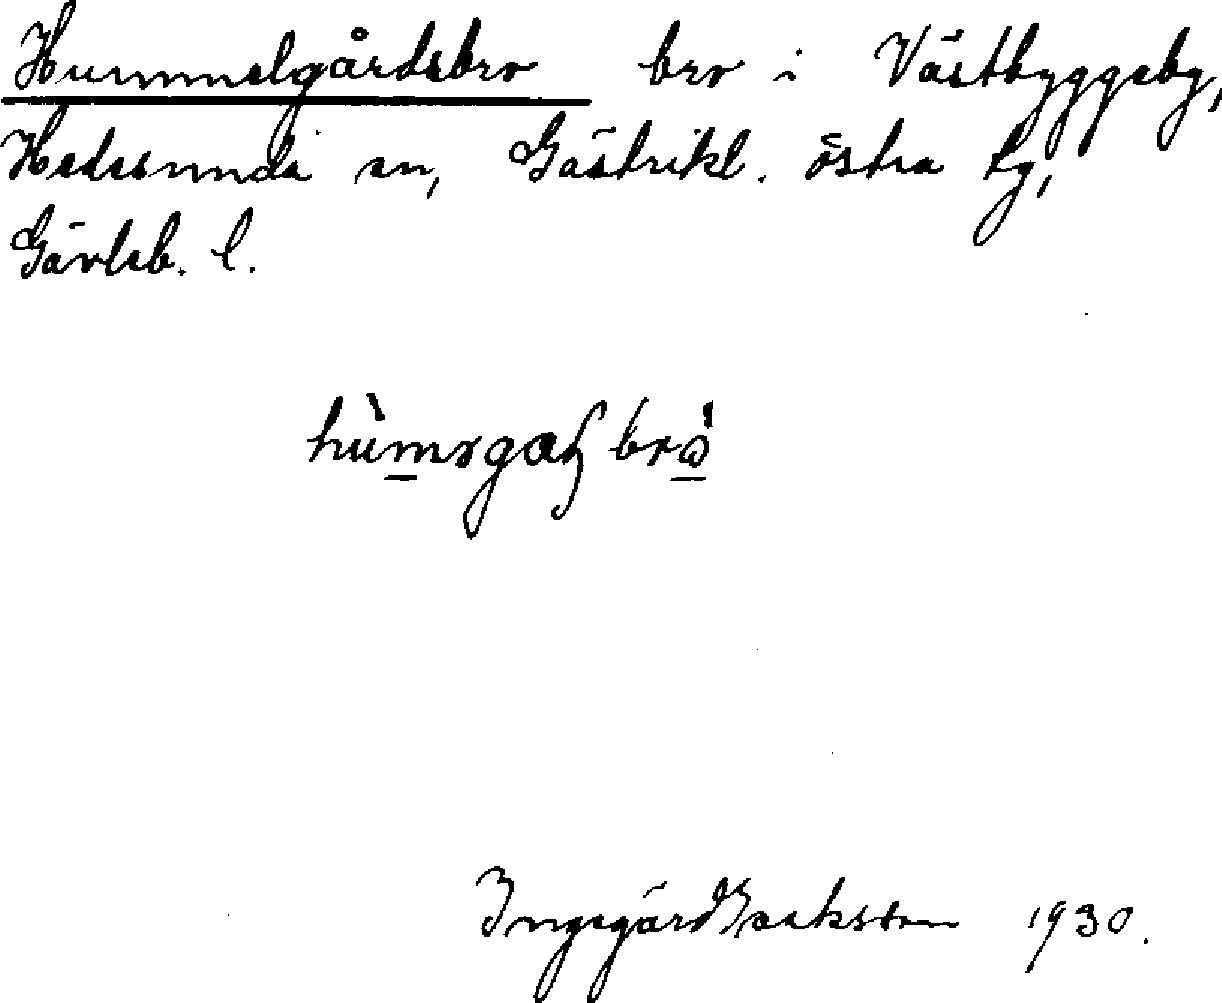 Hummelgårdsbro bro i Västbyggeby,
Hedesunda sn, Gästrikl. östra tg,
Gävleb. l.
Ingegärd Isaksson 1930.